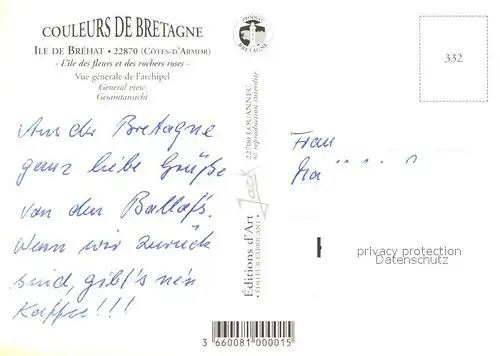 COULEURS DE BRETAGNE
ILE DE BRÉHAT • 22870 (CÔTES-D'ARMOR)
- L'île des fleurs et des rochers roses -
Vue générale de l'archipel
General view
Gesamtansicht
Aus der Bretagne
ganz liebe Grüße
von den Ballaf's.
Wenn wir zurück
sind, gibt's nen
Kaffee!!!
PRODUIT
BRETAGNE
22700 LOUANNEC
© reproduction interdite
Jack
Éditions d'Art
• ÉDITEUR-FABRICANT •
332
Frau
privacy protection
Datenschutz
3 660081 000015